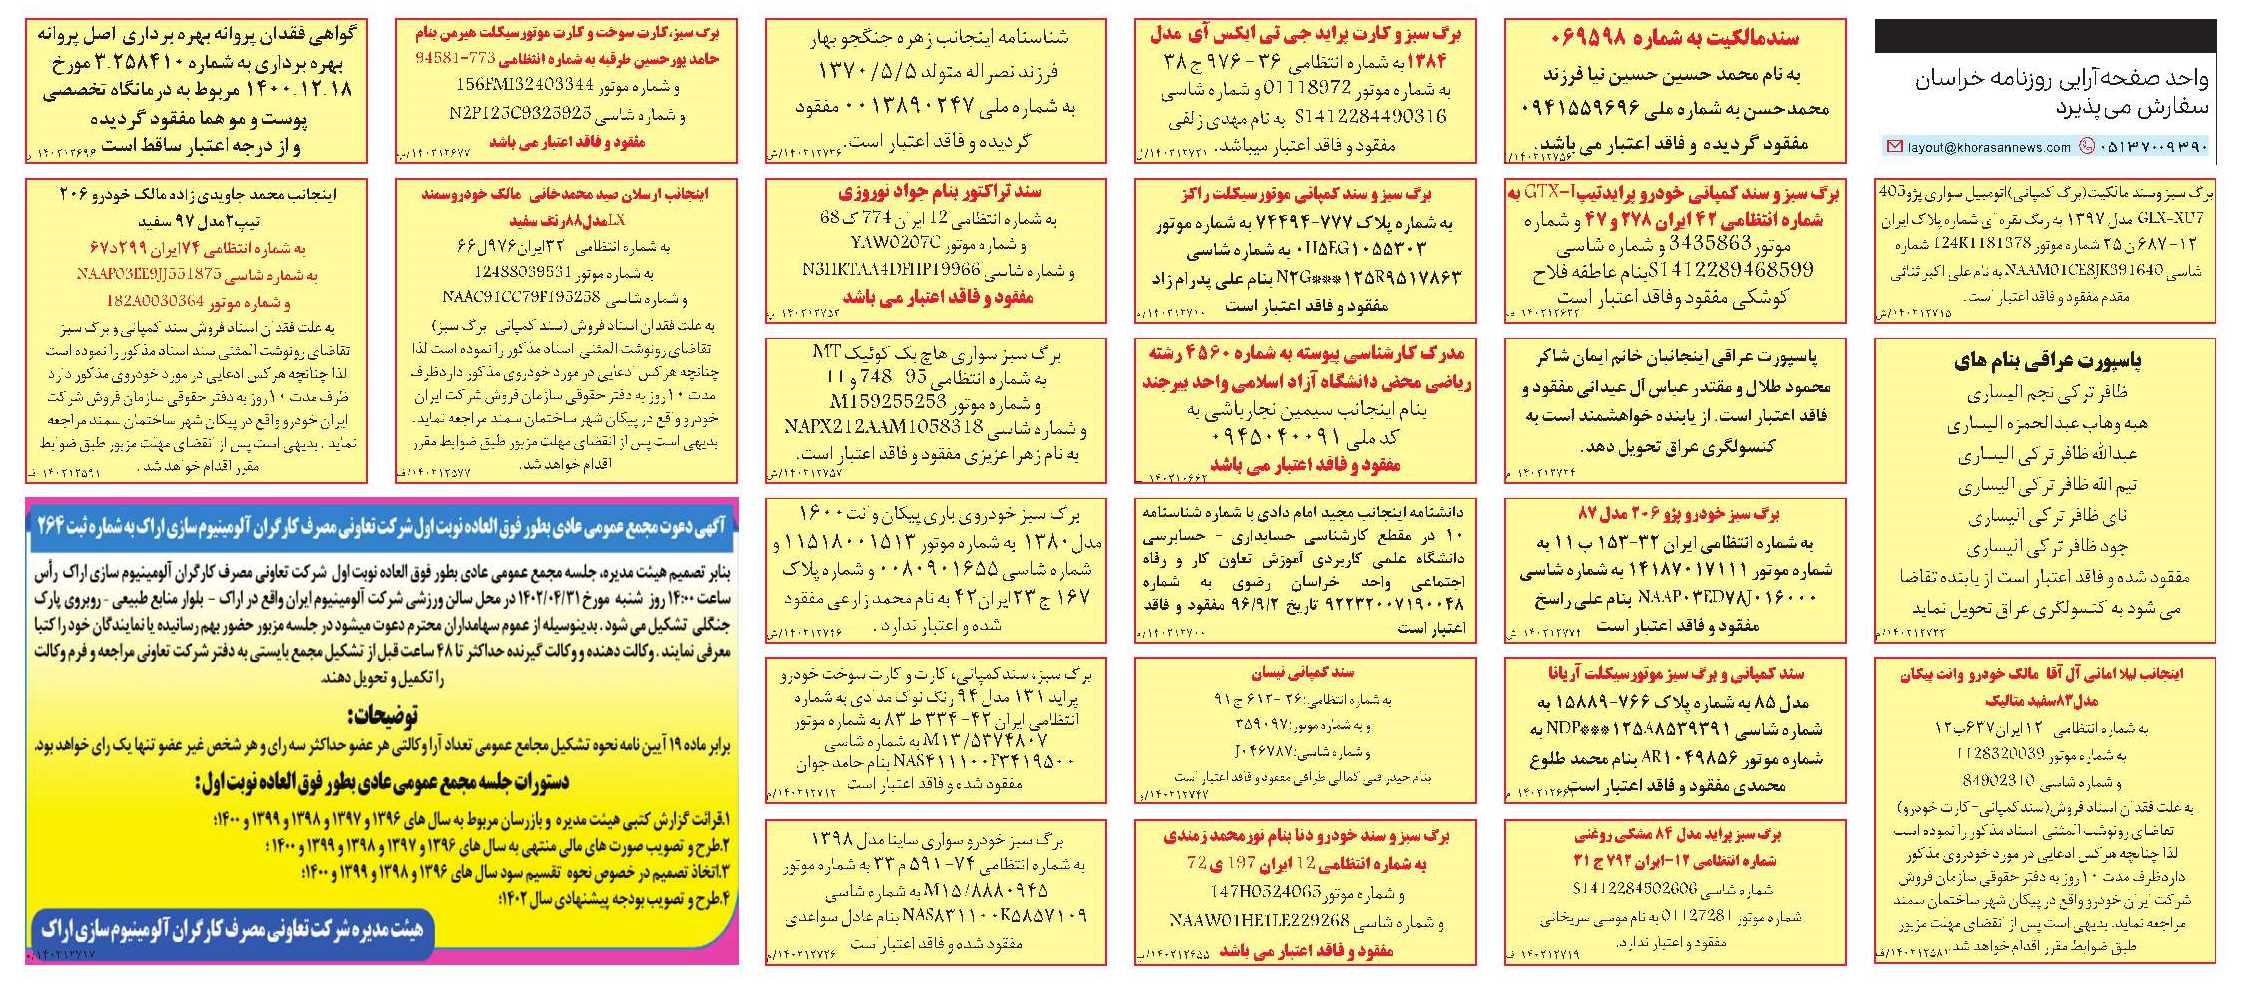 واحد صفحه آرایی روزنامه خراسان
سفارش می‌پذیرد
layout@khorasannews.com ۰۵۱۳۷۰۰۹۳۹۰
برگ سبز و سند مالکیت(برگ کمپانی)اتومبیل سواری پژو405
GLX-XU7 مدل ۱۳۹۷ به رنگ نقره ای شماره پلاک ایران
۱۲-۶۸۷ن۲۵ شماره موتور 124K1181378 شماره
شاسی NAAM01CE3JK391640 به نام علی اکبر ثنائی
مقدم مفقود و فاقد اعتبار است.
۱۴۰۲۱۲۷۱۵/ش
پاسپورت عراقی بنام های
ظافر ترکی نجم الیساری
هبه وهاب عبدالحمزه الیساری
عبدالله ظافر ترکی الیساری
تیم الله ظافر ترکی الیساری
نای ظافر ترکی الیساری
جود ظافر ترکی الیساری
مفقود شده و فاقد اعتبار است از یابنده تقاضا
می شود به کنسولگری عراق تحویل نماید
۱۴۰۲۱۲۷۲۲/م
اینجانب لیلا امانی آل آقا مالک خودرو وانت پیکان
مدل۸۳سفید متالیک
به شماره انتظامی ۱۲ایران۶۳۷ب۱۲
به شماره موتور 1128320039
و شماره شاسی 84902310
به علت فقدان اسناد فروش(سند کمپانی-کارت خودرو)
تقاضای رونوشت المثنی اسناد مذکور را نموده است
لذا چنانچه هرکس ادعایی در مورد خودروی مذکور
داردظرف مدت ۱۰روز به دفتر حقوقی سازمان فروش
شرکت ایران خودرو واقع در پیکان شهر ساختمان سمند
مراجعه نماید. بدیهی است پس از انقضای مهلت مزبور
طبق ضوابط مقرر اقدام خواهد شد.
۱۴۰۲۱۲۵۸۱/ف
سندمالکیت به شماره ۰۶۹۵۹۸
به نام محمد حسین حسین نیا فرزند
محمدحسن به شماره ملی ۰۹۴۱۵۵۹۶۹۶
مفقود گردیده و فاقد اعتبار می باشد.
۱۴۰۲۱۲۷۵۶/
برگ سبز و سند کمپانی خودرو پرایدتیپGTX-I به
شماره انتظامی ۴۲ ایران ۲۷۸ و ۴۷ و شماره
موتور3435863 و شماره شاسی
S1412289468599بنام عاطفه فلاح
کوشکی مفقود وفاقد اعتبار است
۱۴۰۲۱۲۶۲۲ م
پاسپورت عراقی اینجانبان خانم ایمان شاکر
محمود طلال و مقتدر عباس آل عیدانی مفقود و
فاقد اعتبار است. از یابنده خواهشمند است به
کنسولگری عراق تحویل دهد.
۱۴۰۲۱۲۷۲۴ م
برگ سبز خودرو پژو ۲۰۶ مدل ۸۷
به شماره انتظامی ایران ۳۲-۱۵۳ ب ۱۱ به
شماره موتور ۱۴۱۸۷۰۱۷۱۱۱ به شماره شاسی
NAAP۰۳ED۷۸J۰۱۶۰۰۰ بنام علی راسخ
مفقود و فاقد اعتبار است
۱۴۰۲۱۲۷۷۴ ش
سند کمپانی و برگ سبز موتورسیکلت آریانا
مدل ۸۵ به شماره پلاک ۷۶۶-۱۵۸۸۹ به
شماره شاسی NDP***۱۲۵A۸۵۳۹۳۹۱ به
شماره موتور AR۱۰۴۹۸۵۶ بنام محمد طلوع
محمدی مفقود و فاقد اعتبار است
برگ سبز پراید مدل ۸۴ مشکی روغنی
شماره انتظامی ۱۲-ایران ۷۹۲ ج ۲۱
شماره شاسی S1412284502606
شماره موتور 01127281 به نام موسی سربخانی
مفقود و اعتبار ندارد.
۱۴۰۲۱۲۷۱۹ ف
برگ سبز و کارت پراید جی تی ایکس آی مدل
۱۳۸۴ به شماره انتظامی ۳۶-۹۷۶ ج ۳۸
به شماره موتور 01118972 و شماره شاسی
S1412284490316 به نام مهدی زلفی
مفقود و فاقد اعتبار میباشد.
برگ سبز و سند کمپانی موتورسیکلت راکز
به شماره پلاک ۷۷۷-۷۴۴۹۴ به شماره موتور
۰H۵EG۱۰۵۵۳۰۳ به شماره شاسی
N۲G***۱۲۵R۹۵۱۷۸۶۳ بنام علی پدرام زاد
مفقود و فاقد اعتبار است
۱۴۰۲۱۲۷۱۰/م
مدرک کارشناسی پیوسته به شماره ۴۵۶۰ رشته
ریاضی محض دانشگاه آزاد اسلامی واحد بیرجند
بنام اینجانب سیمین نجارباشی به
کد ملی ۰۹۴۵۰۴۰۰۹۱
مفقود و فاقد اعتبار می باشد
دانشنامه اینجانب مجید امام دادی با شماره شناسنامه
۱۰ در مقطع کارشناسی حسابداری - حسابرسی
دانشگاه علمی کاربردی آموزش تعاون کار و رفاه
اجتماعی واحد خراسان رضوی به شماره
۹۲۲۳۲۰۰۷۱۹۰۰۴۸ تاریخ ۹۶/۹/۲ مفقود و فاقد
اعتبار است
۱۴۰۲۱۲۷۰۰/م
سند کمپانی نیسان
به شماره انتظامی:۳۶ -۶۱۲ ج ۹۱
و به شماره موتور:۳۵۹۰۹۷
و شماره شاسی:J۰۴۶۷۸۷
بنام حیدر قلی کمالی طراقی مفقود و فاقد اعتبار است
۱۴۰۲۱۲۷۴۷/و
برگ سبز و سند خودرو دنا بنام نورمحمد زمندی
به شماره انتظامی 12 ایران 197 ی 72
و شماره موتور147H0324063
و شماره شاسی NAAW01HE1LE229268
مفقود و فاقد اعتبار می باشد
۱۴۰۲۱۲۶۵۵/پ
شناسنامه اینجانب زهره جنگجو بهار
فرزند نصراله متولد ۱۳۷۰/۵/۵
به شماره ملی ۰۰۱۳۸۹۰۲۴۷ مفقود
گردیده و فاقد اعتبار است.
۱۴۰۲۱۲۷۳۶/ش
سند تراکتور بنام جواد نوروزی
به شماره انتظامی 12 ایران 774 ک 68
و شماره موتور YAW0207C
و شماره شاسی N3HKTAA4DFHP19966
مفقود و فاقد اعتبار می باشد
۱۴۰۲۱۲۷۵۲ پ
برگ سبز سواری هاچ بک کوئیک MT
به شماره انتظامی 95 748 و 11
و شماره موتور M159255253
و شماره شاسی NAPX212AAM1058318
به نام زهرا عزیزی مفقود و فاقد اعتبار است.
۱۴۰۲۱۲۷۵۷/ش
برگ سبز خودروی باری پیکان وانت ۱۶۰۰
مدل ۱۳۸۰ به شماره موتور ۱۱۵۱۸۰۰۱۵۱۳ و
شماره شاسی ۰۰۸۰۹۰۱۶۵۵ و شماره پلاک
۱۶۷ ج ۲۳ ایران ۴۲ به نام محمد زارعی مفقود
شده و اعتبار ندارد .
۱۴۰۲۱۲۷۴۶/ش
برگ سبز، سندکمپانی، کارت و کارت سوخت خودرو
پراید ۱۳۱ مدل ۹۴ رنگ نوک مدادی به شماره
انتظامی ایران ۴۲-۳۳۴ ط ۸۳ به شماره موتور
M۱۳/۵۳۷۴۸۰۷ به شماره شاسی
NAS۴۱۱۱۰۰F۳۴۱۹۵۰۰ بنام حامد جوان
مفقود شده و فاقد اعتبار است
۱۴۰۲۱۲۷۱۲/م
برگ سبز خودرو سواری ساینا مدل ۱۳۹۸
به شماره انتظامی ۷۴-۵۹۱ م ۳۳ به شماره موتور
M۱۵/۸۸۸۰۹۴۵ به شماره شاسی
NAS۸۳۱۱۰۰K۵۸۵۷۱۰۹ بنام عادل سواعدی
مفقود شده و فاقد اعتبار است
۱۴۰۲۱۲۷۲۶/م
برگ سبز،کارت سوخت و کارت موتورسیکلت هیرمن بنام
حامد پورحسین طرقبه به شماره انتظامی 773-94581
و شماره موتور 156FMI32403344
و شماره شاسی N2P125C9325925
مفقود و فاقد اعتبار می باشد
۱۴۰۲۱۲۶۷۷/پ
اینجانب ارسلان صید محمدخانی مالک خودروسمند
LXمدل۸۸رنگ سفید
به شماره انتظامی ۲۲ایران۹۷۶ل۶۶
به شماره موتور 12488039531
و شماره شاسی NAAC91CC79F195258
به علت فقدان اسناد فروش (سند کمپانی برگ سبز)
تقاضای رونوشت المثنی اسناد مذکور را نموده است لذا
چنانچه هرکس ادعایی در مورد خودروی مذکور داردظرف
مدت ۱۰روز به دفتر حقوقی سازمان فروش شرکت ایران
خودرو واقع در پیکان شهر ساختمان سمند مراجعه نماید.
بدیهی است پس از انقضای مهلت مزبور طبق ضوابط مقرر
اقدام خواهد شد.
۱۴۰۲۱۲۵۷۷/ف
گواهی فقدان پروانه بهره برداری اصل پروانه
بهره برداری به شماره ۳.۲۵۸۴۱۰ مورخ
۱۴۰۰.۱۲.۱۸ مربوط به درمانگاه تخصصی
پوست و مو هما مفقود گردیده
و از درجه اعتبار ساقط است
اینجانب محمد جاویدی زاده مالک خودرو ۲۰۶
تیپ۲مدل ۹۷ سفید
به شماره انتظامی ۷۴ایران ۲۹۹د۶۷
به شماره شاسی NAAP03EE9JJ551875
و شماره موتور 182A0030364
به علت فقدان اسناد فروش سند کمپانی و برگ سبز
تقاضای رونوشت المثنی سند اسناد مذکور را نموده است
لذا چنانچه هرکس ادعایی در مورد خودروی مذکور دارد
ظرف مدت ۱۰روز به دفتر حقوقی سازمان فروش شرکت
ایران خودرو واقع در پیکان شهر ساختمان سمند مراجعه
نماید . بدیهی است پس از انقضای مهلت مزبور طبق ضوابط
مقرر اقدام خواهد شد .
۱۴۰۲۱۲۵۹۱ ف
آگهی دعوت مجمع عمومی عادی بطور فوق العاده نوبت اول شرکت تعاونی مصرف کارگران آلومینیوم سازی اراک به شماره ثبت ۲۶۴
بنابر تصمیم هیئت مدیره، جلسه مجمع عمومی عادی بطور فوق العاده نوبت اول شرکت تعاونی مصرف کارگران آلومینیوم سازی اراک رأس
ساعت ۱۴:۰۰ روز شنبه مورخ ۱۴۰۲/۰۴/۳۱ در محل سالن ورزشی شرکت آلومینیوم ایران واقع در اراک - بلوار منابع طبیعی - روبروی پارک
جنگلی تشکیل می شود . بدینوسیله از عموم سهامداران محترم دعوت میشود در جلسه مزبور حضور بهم رسانیده یا نمایندگان خود را کتبا
معرفی نمایند . وکالت دهنده و وکالت گیرنده حداکثر تا ۴۸ ساعت قبل از تشکیل مجمع بایستی به دفتر شرکت تعاونی مراجعه و فرم وکالت
را تکمیل و تحویل دهند.
توضیحات:
برابر ماده ۱۹ آیین نامه نحوه تشکیل مجامع عمومی تعداد آرا وکالتی هر عضو حداکثر سه رای و هر شخص غیر عضو تنها یک رای خواهد بود.
دستورات جلسه مجمع عمومی عادی بطور فوق العاده نوبت اول:
۱.قرائت گزارش کتبی هیئت مدیره و بازرسان مربوط به سال های ۱۳۹۶ و ۱۳۹۷ و ۱۳۹۸ و ۱۳۹۹ و ۱۴۰۰؛
۲.طرح و تصویب صورت های مالی منتهی به سال های ۱۳۹۶ و ۱۳۹۷ و ۱۳۹۸ و ۱۳۹۹ و ۱۴۰۰ ؛
۳.اتخاذ تصمیم در خصوص نحوه تقسیم سود سال های ۱۳۹۶ و ۱۳۹۸ و ۱۳۹۹ و ۱۴۰۰؛
۴.طرح و تصویب بودجه پیشنهادی سال ۱۴۰۲؛
هیئت مدیره شرکت تعاونی مصرف کارگران آلومینیوم سازی اراک
۱۴۰۲۱۲۷۱۷/م